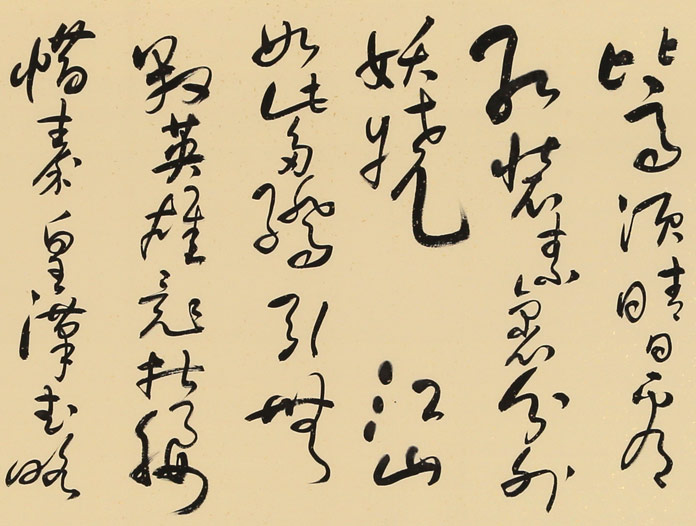 比高須晴日看
紅裝素裹分外
妖嬈江山
如此多嬌引無
數英雄競折腰
惜秦皇漢武略